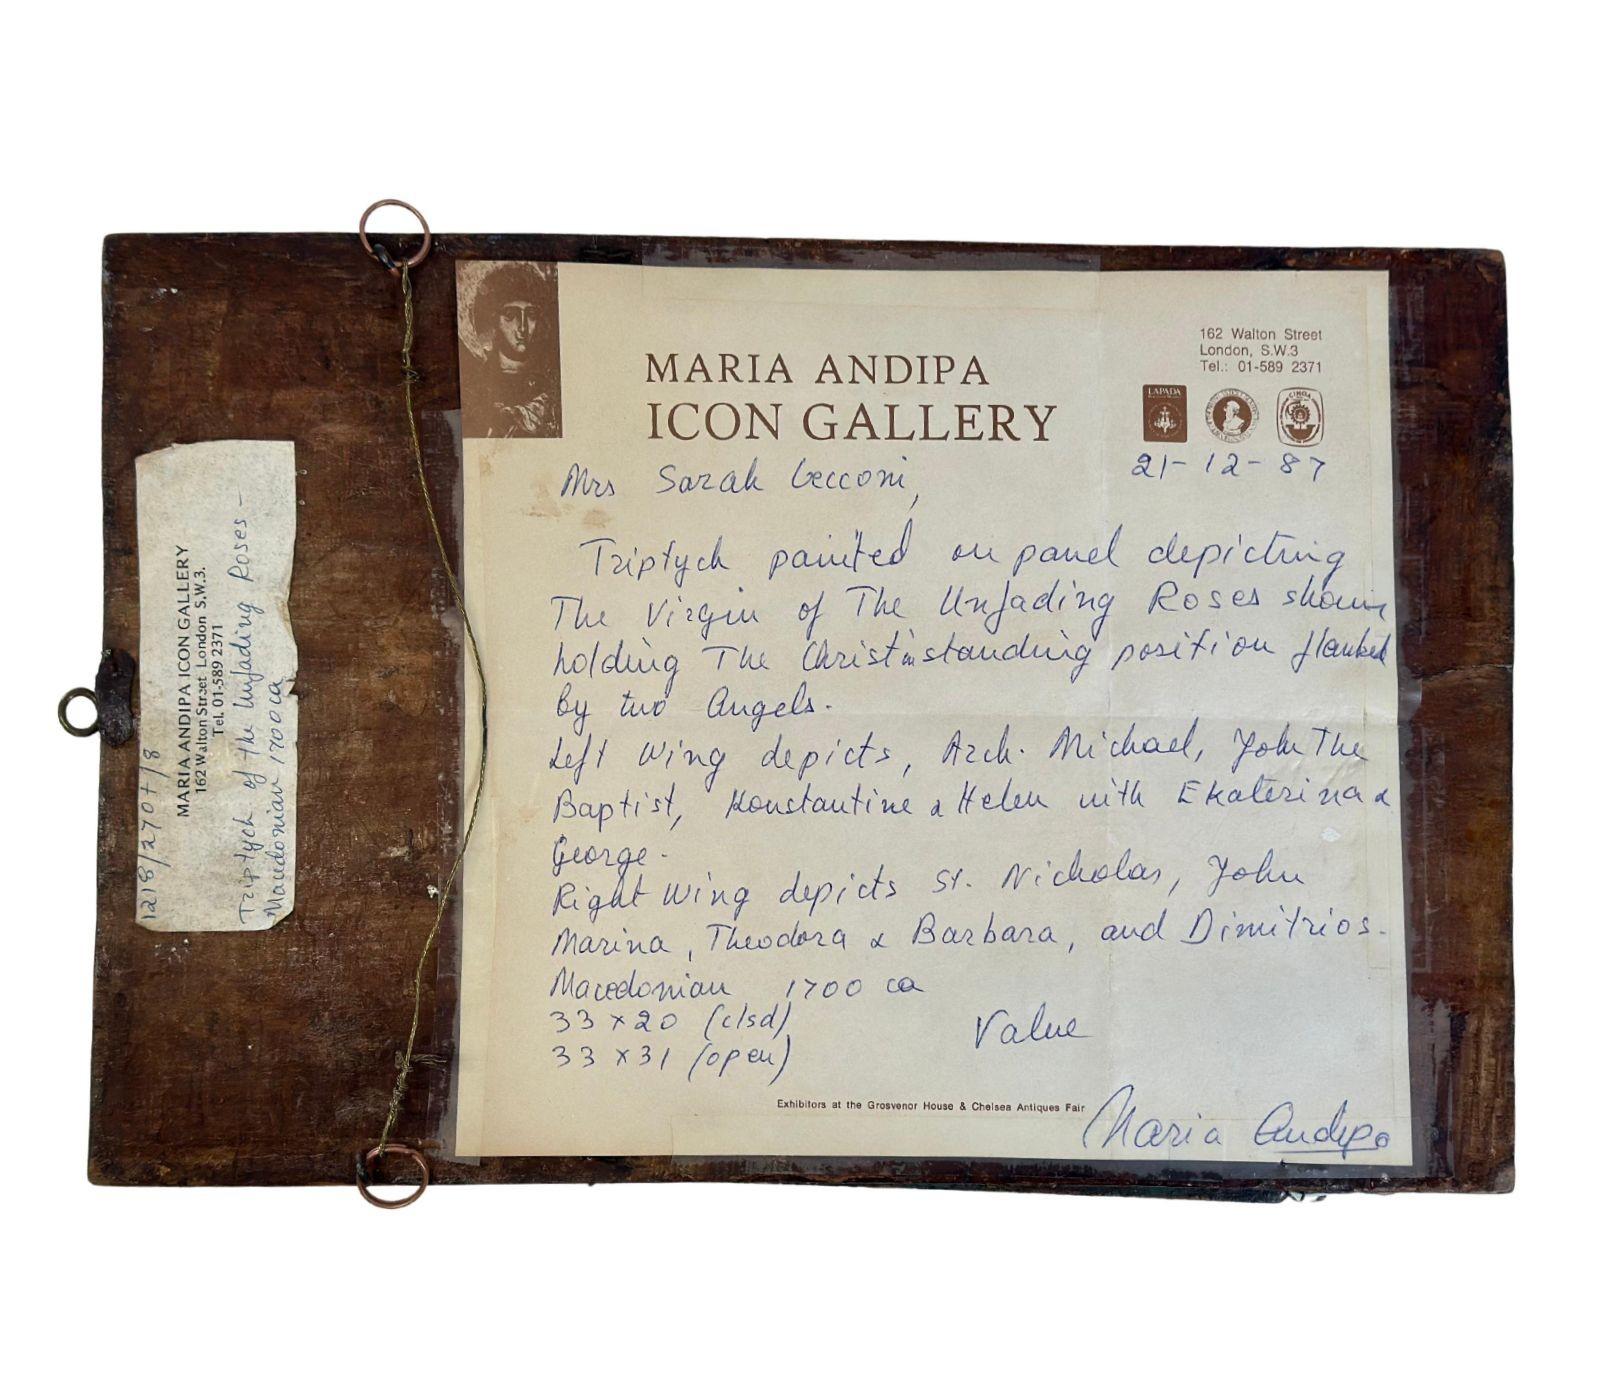 MARIA ANDIPA
ICON GALLERY
162 Walton Street
London, S.W.3
Tel.: 01-589 2371
LAPADA
CINOA
21-12-87
Mrs Sarah Cecconi,
Triptych painted on panel depicting
The Virgin of The Unfading Roses shown
holding The Christ in standing position flanked
by two Angels.
Left Wing depicts, Arch. Michael, John The
Baptist, Konstantine & Helen with Ekaterina &
George.
Right Wing depicts St. Nicholas, John
Marina, Theodora & Barbara, and Dimitrios.
Macedonian 1700 ca
33 x 20 (clsd)
33 x 31 (open)
Value
Exhibitors at the Grosvenor House & Chelsea Antiques Fair
Maria Andipa
1218/270+/8
MARIA ANDIPA ICON GALLERY
162 Walton Street London S.W.3.
Tel. 01-589 2371
Triptych of the Unfading Roses -
Macedonian 1700 ca